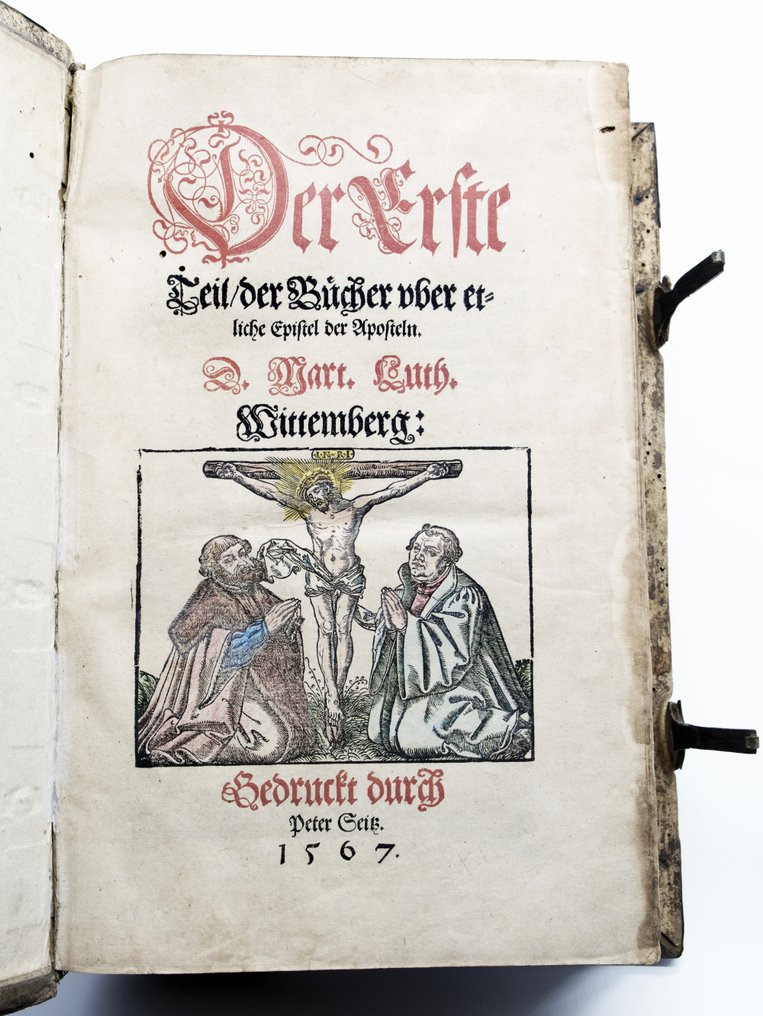 Der Erste
Teil/der Bücher vber et-
liche Epistel der Aposteln.
D. Mart. Luth.
Wittemberg:
I·N·R·I
Gedruckt durch
Peter Seitz.
1567.